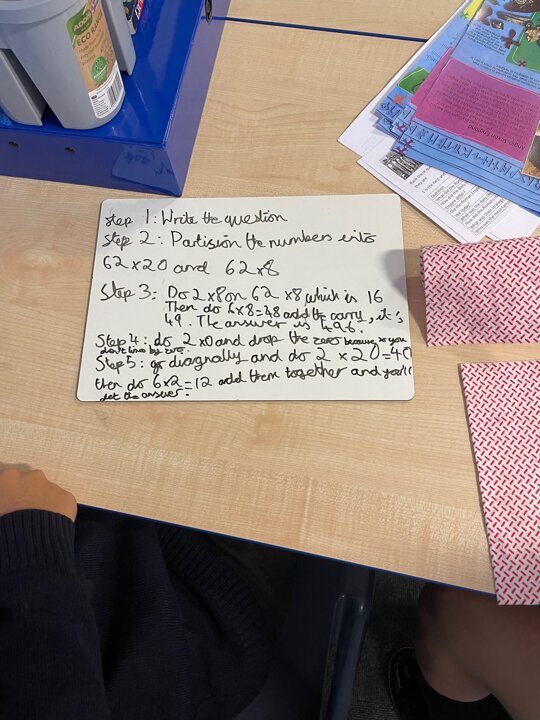 ADDIS
ECO RANGE
Anglo Saxon England
step 1: Write the question
step 2: Partision the numbers into
62 x 20 and 62 x 8
Step 3: Do 2 x 8 on 62 x 8 which is 16
Then do 6 x 8 = 48 add the carry, it's
49. The answer is 496.
Step 4: do 2 x 0 and drop the zero because so you
don't times by zero.
Step 5: go diagnally and do 2 x 20 = 40
then do 6 x 2 = 12 add them together and you'll
get the answer.